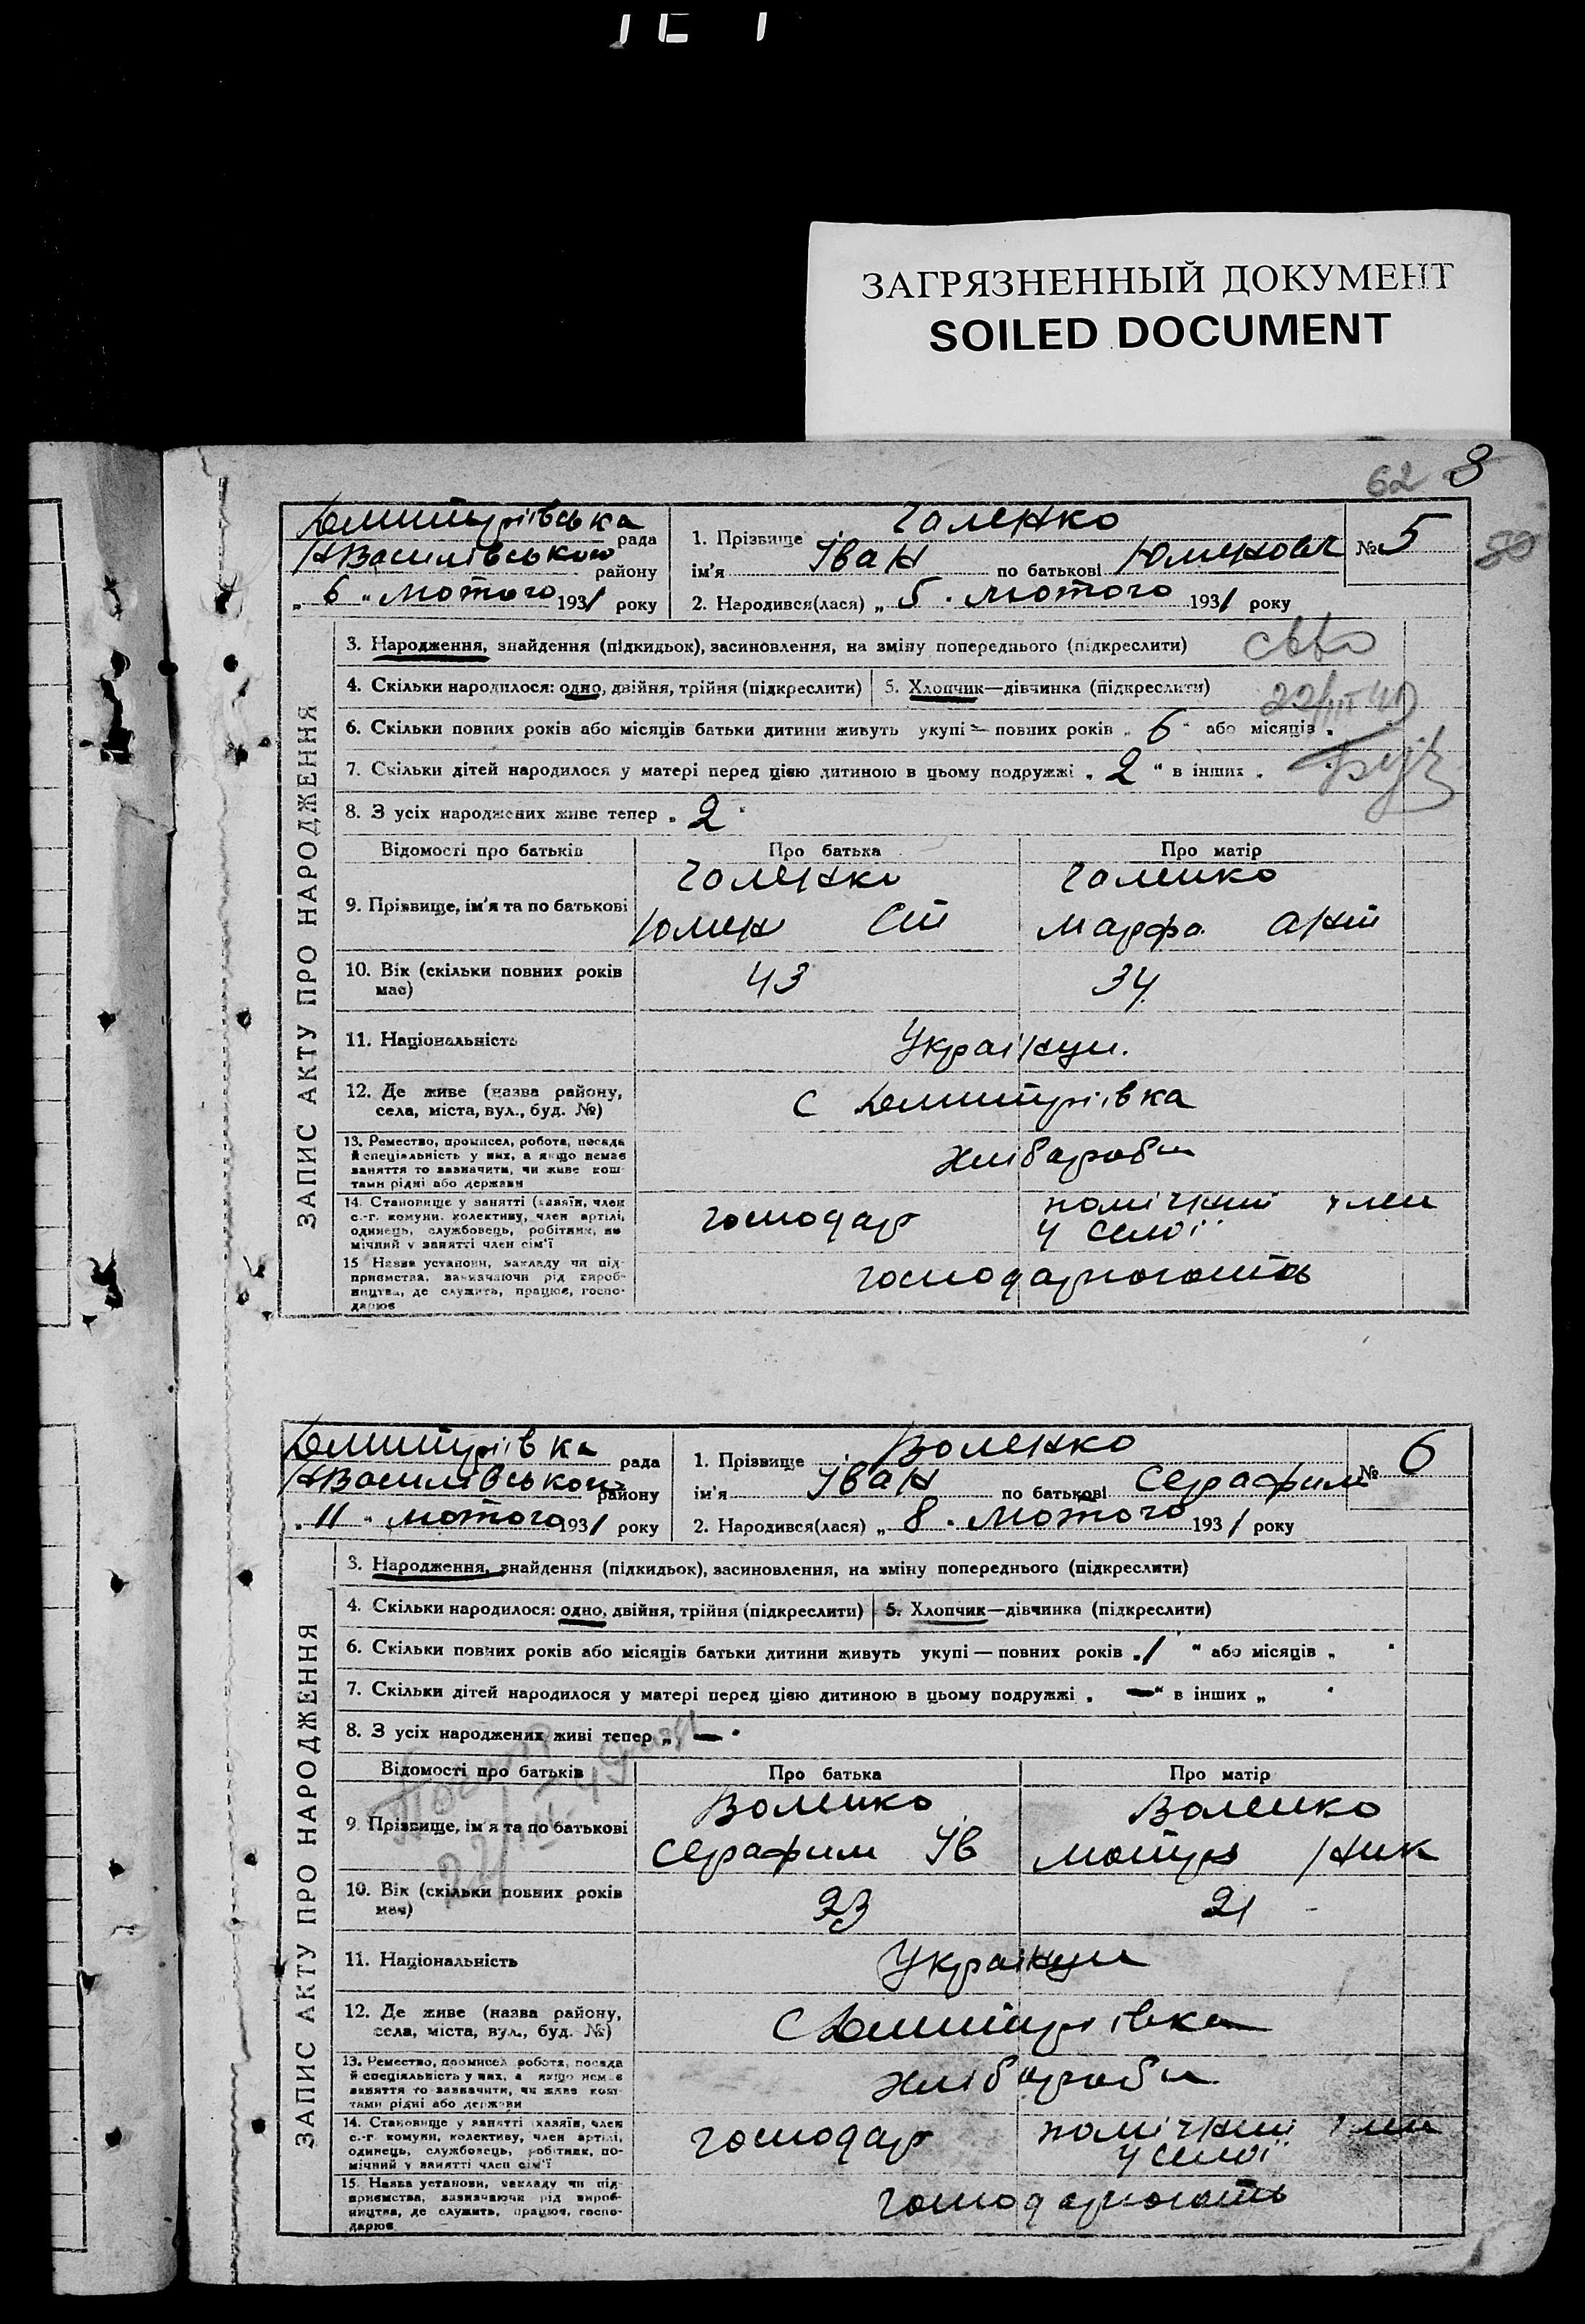 ЗАГРЯЗНЕННЫЙ ДОКУМЕНТ
SOILED DOCUMENT
62 8
50
ЗАПИС АКТУ ПРО НАРОДЖЕННЯ
Дмитріївська рада
НВасилівського району
„ 6 „ лютого 1931 року
1. Прізвище Галенко
ім'я Іван по батькові Юменович
№ 5
2. Народився(лася) „ 5 . лютого 1931 року
3. Народження, знайдення (підкидьок), засиновлення, на зміну попереднього (підкреслити)
4. Скільки народилося: одно, двійня, трійня (підкреслити) 5. Хлопчик—дівчинка (підкреслити)
22/III 40
6. Скільки повних років або місяців батьки дитини живуть укупі — повних років „ 6 " або місяців „
7. Скільки дітей народилося у матері перед цією дитиною в цьому подружжі „ 2 " в інших „
8. З усіх народжених живе тепер „ 2 "
Відомості про батьків Про батька Про матір
9. Прізвище, ім'я та по батькові
Галенко Галенко
Юмен Ст Марфа Ант
10. Вік (скільки повних років має) 43 34
11. Національність Українци.
12. Де живе (назва району, села, міста, вул., буд. №) с Дмитріївка
13. Ремество, промисел, робота, посада
й спеціяльність у них, а якщо немає
заняття то зазначити, чи живе кош-
тами рідні або держави
хлібороби
14. Становище у занятті (хазяїн, член
с.-г. комуни, колективу, член артілі,
одинець, службовець, робітник, по-
мічний у занятті член сім'ї
господар помічний член
у селої
15 Назва установи, закладу чи під-
приємства, зазначаючи рід вироб-
ництва, де служить, працює, госпо-
дарює
господарюють
ЗАПИС АКТУ ПРО НАРОДЖЕННЯ
Дмитріївка рада
НВасилівського району
„ 11 „ лютого 1931 року
1. Прізвище Воленко
ім'я Іван по батькові Серафим
№ 6
2. Народився(лася) „ 8 . лютого 1931 року
3. Народження, знайдення (підкидьок), засиновлення, на зміну попереднього (підкреслити)
4. Скільки народилося: одно, двійня, трійня (підкреслити) 5. Хлопчик—дівчинка (підкреслити)
6. Скільки повних років або місяців батьки дитини живуть укупі — повних років „ 1 " або місяців „
7. Скільки дітей народилося у матері перед цією дитиною в цьому подружжі „ — " в інших „
8. З усіх народжених живі тепер „ — "
Відомості про батьків Про батька Про матір
9. Прізвище, ім'я та по батькові
Воленко Воленко
Серафим Ів Мотря Ник
10. Вік (скільки повних років має) 23 21
11. Національність Українци
12. Де живе (назва району, села, міста, вул., буд. №) с Дмитріївка
13. Ремество, промисел робота, посада
й спеціяльність у них, а якщо немає
заняття то зазначити, чи живе кош-
тами рідні або держави
хлібороби
14. Становище у занятті хазяїн, член
с.-г комуни, колективу, член артілі,
одинець, службовець, робітник, по-
мічний у занятті член сім'ї
господар помічний член
у селої
15. Назва установи, закладу чи під-
приємства, зазначаючи рід вироб-
ництва, де служить, працює, госпо-
дарює
господарюють